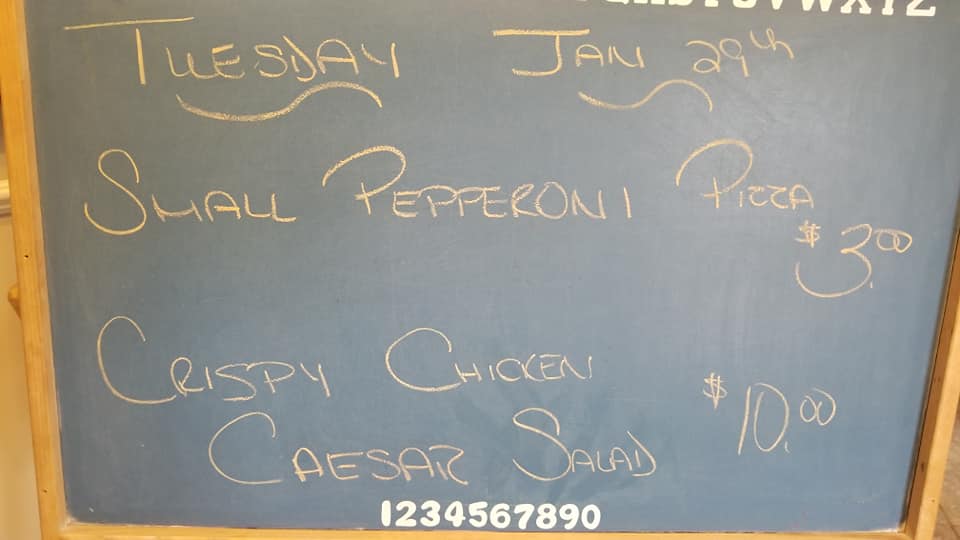 TUESDAY JAN 29th
SMALL PEPPERONI PIZZA
$3.00
CRISPY CHICKEN
CAESAR SALAD $10.00
1234567890